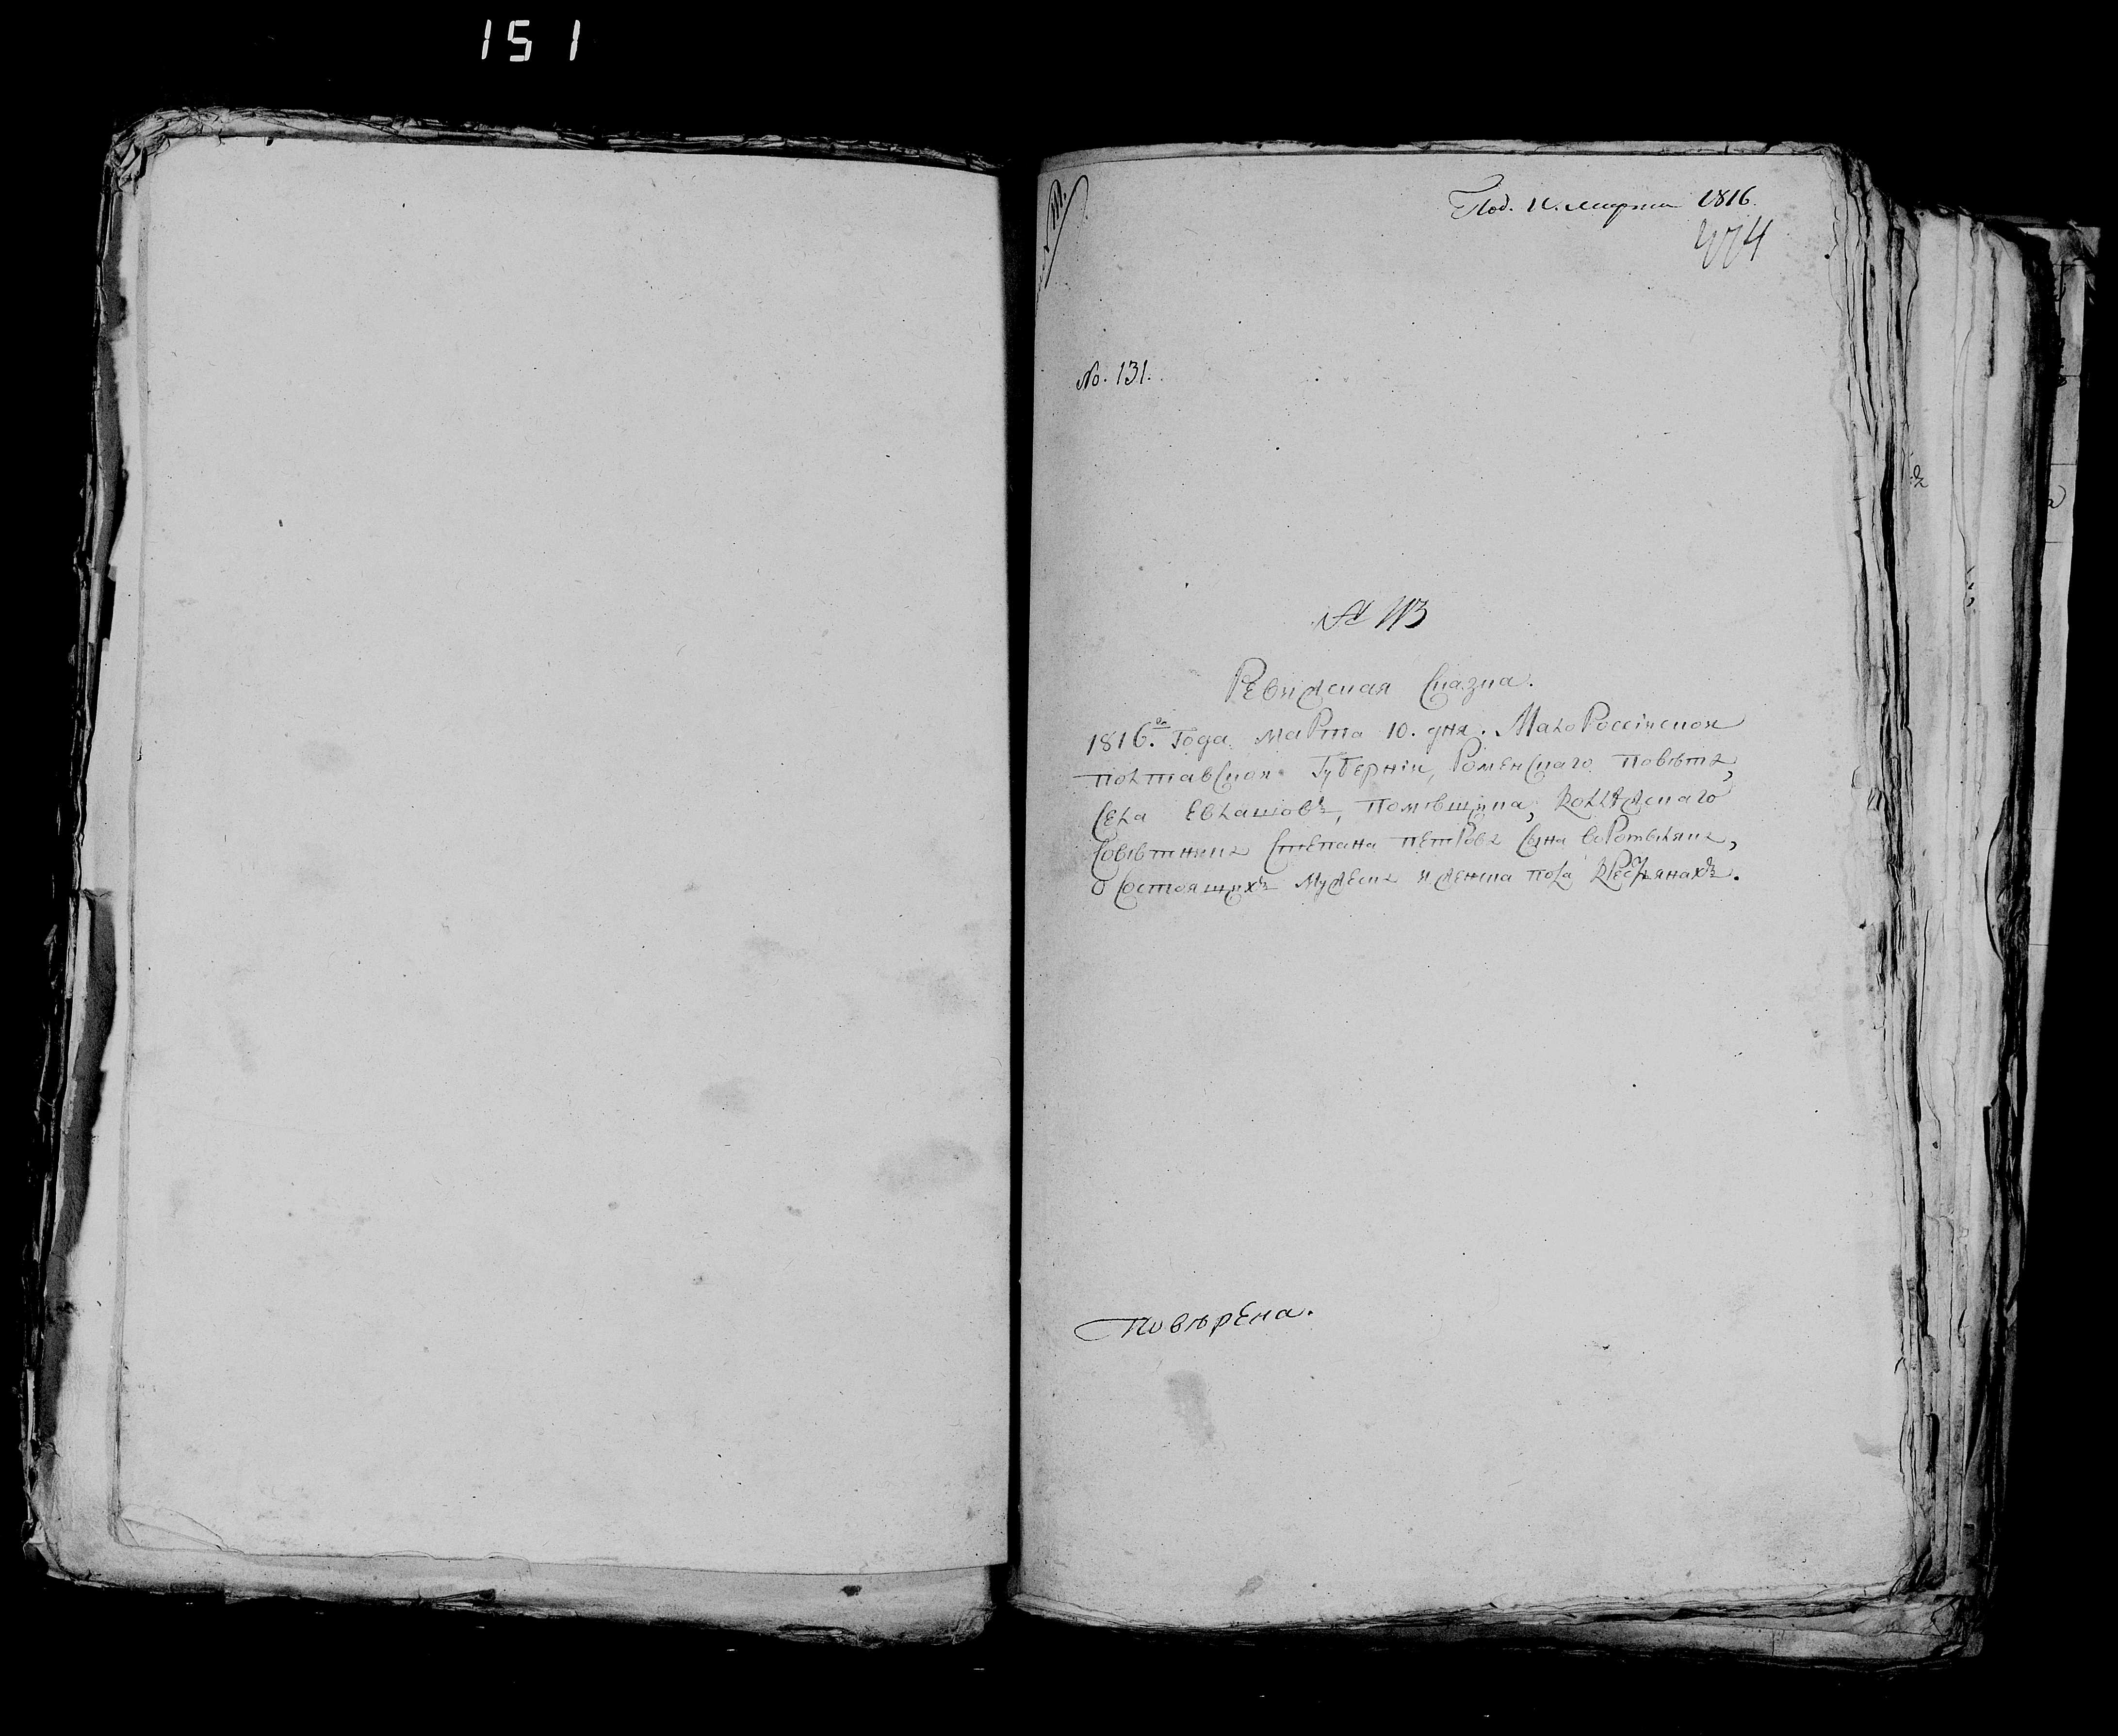 151
Под. 11. марта 1816.
No. 131.
№ 113
Ревижская Сказка.
1816.го Года марта 10. дня. МалоРоссійской
полтавской Губерніи, Роменскаго повѣта,
Села Евлашовъ, помѣщика, коллежскаго
Совѣтника Степана петрова Сына
о Состоящихъ мужеска и женска пола крестьянахъ.
Повѣрена.